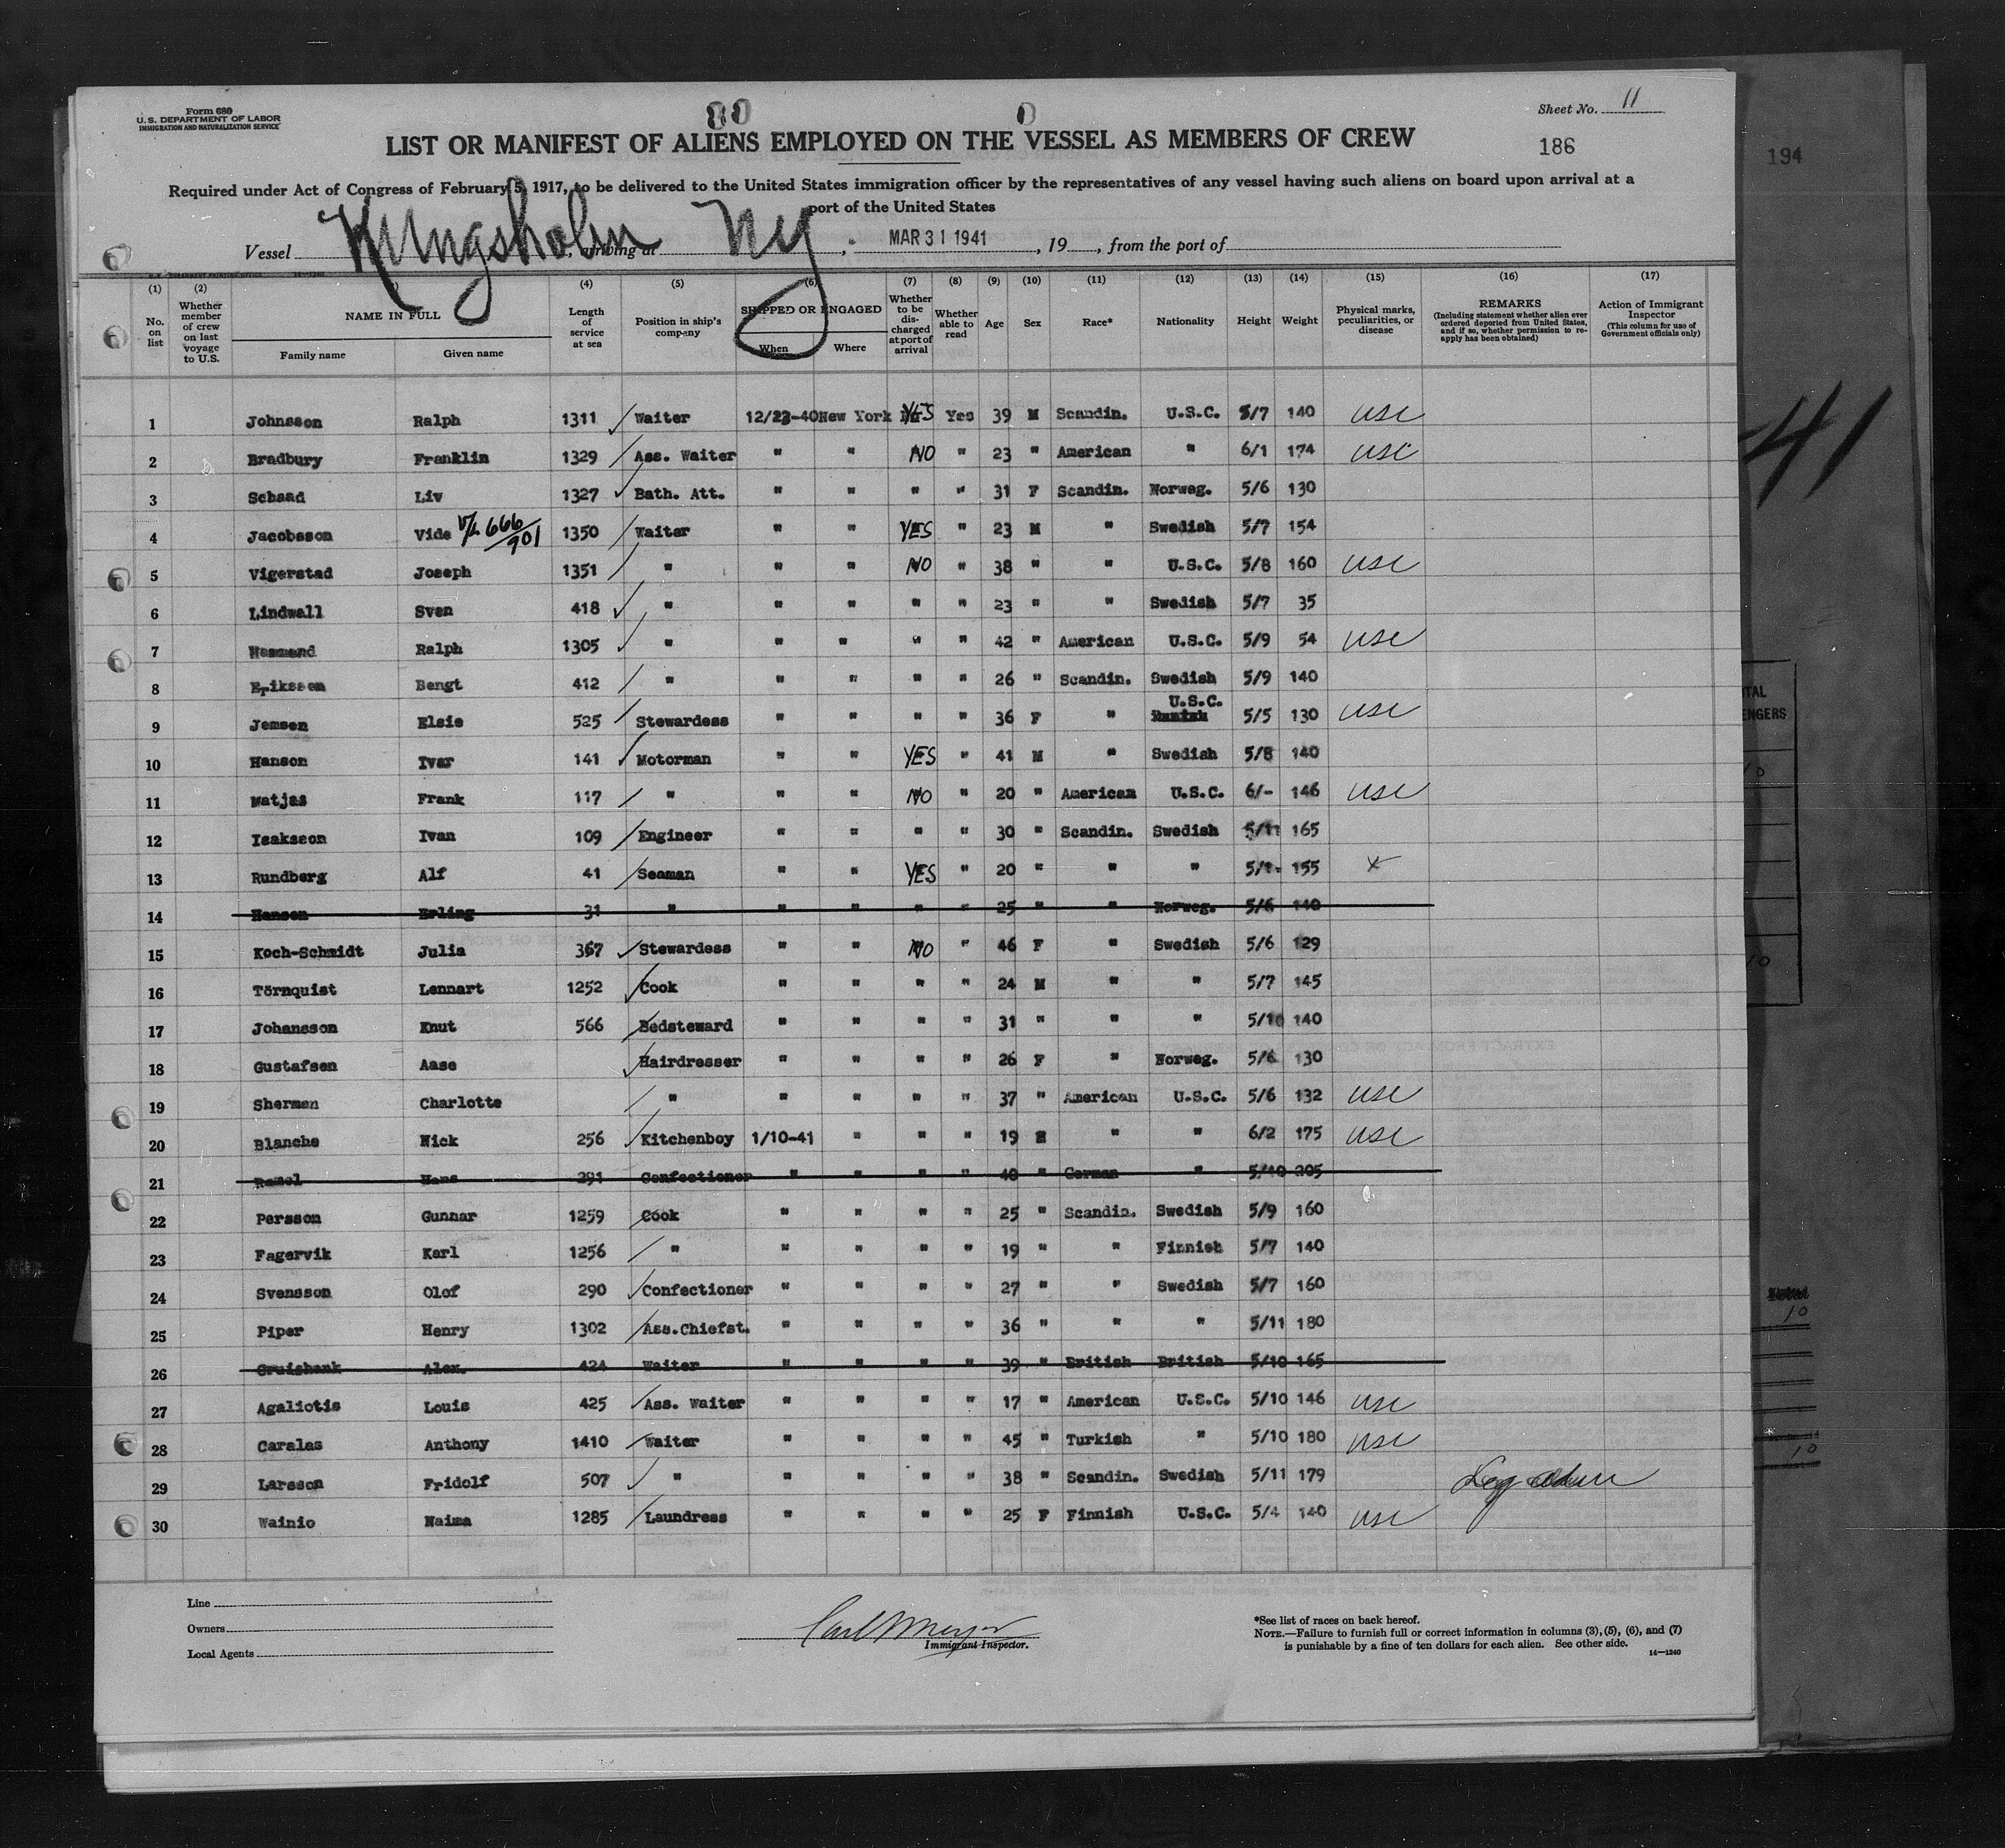 Form 680
U.S. DEPARTMENT OF LABOR
IMMIGRATION AND NATURALIZATION SERVICE
Sheet No. 11
LIST OR MANIFEST OF ALIENS EMPLOYED ON THE VESSEL AS MEMBERS OF CREW
186
194
Required under Act of Congress of February 5, 1917, to be delivered to the United States immigration officer by the representatives of any vessel having such aliens on board upon arrival at a
port of the United States
Vessel Kungsholm, arriving at NY, MAR 31 1941, 19, from the port of
(1) No. on list
(2) Whether member of crew on last voyage to U.S.
NAME IN FULL Family name Given name
(4) Length of service at sea
(5) Position in ship's company
(6) SHIPPED OR ENGAGED When Where
(7) Whether to be discharged at port of arrival
(8) Whether able to read
(9) Age
(10) Sex
(11) Race*
(12) Nationality
(13) Height
(14) Weight
(15) Physical marks, peculiarities, or disease
(16) REMARKS (Including statement whether alien ever ordered deported from United States, and if so, whether permission to reapply has been obtained)
(17) Action of Immigrant Inspector (This column for use of Government officials only)
1 Johnsson Ralph 1311 Waiter 12/23-40 New York YES Yes 39 M Scandin. U.S.C. 5/7 140 USC
2 Bradbury Franklin 1329 Ass. Waiter " " NO " 23 " American " 6/1 174 USC
3 Schaad Liv 1327 Bath. Att. " " " " 31 F Scandin. Norweg. 5/6 130
4 Jacobsson Vide 666/901 1350 Waiter " " YES " 23 M " Swedish 5/7 154
5 Vigerstad Joseph 1351 " " " NO " 38 " " U.S.C. 5/8 160 USC
6 Lindwall Sven 418 " " " " " 23 " " Swedish 5/7 35
7 Ralph 1305 " " " " " 42 " American U.S.C. 5/9 54 USC
8 Eriksson Bengt 412 " " " " " 26 " Scandin. Swedish 5/9 140
9 Jemsen Elsie 525 Stewardess " " " " 36 F " U.S.C. Danish 5/5 130 USC
10 Hanson Ivar 141 Motorman " " YES " 41 M " Swedish 5/8 140
11 Matjas Frank 117 " " " NO " 20 " American U.S.C. 6/- 146 USC
12 Isaksson Ivan 109 Engineer " " " " 30 " Scandin. Swedish 5/11 165
13 Rundberg Alf 41 Seaman " " YES " 20 " " " 155 x
14 Hansen Erling 31 " " " " " 25 " " Norweg. 5/6 140
15 Koch-Schmidt Julia 367 Stewardess " " NO " 46 F " Swedish 5/6 129
16 Törnquist Lennart 1252 Cook " " " " 24 M " " 5/7 145
17 Johansson Knut 566 Bedsteward " " " " 31 " " " 5/10 140
18 Gustafsen Aase Hairdresser " " " " 26 F " Norweg. 5/6 130
19 Sherman Charlotte " " " " " 37 " American U.S.C. 5/6 132 USC
20 Blanche Nick 256 Kitchenboy 1/10-41 " " " 19 M " " 6/2 175 USC
21 Hans 291 Confectioner " " " " 40 " German " 5/10 205
22 Persson Gunnar 1259 Cook " " " " 25 " Scandin. Swedish 5/9 160
23 Fagervik Karl 1256 " " " " " 19 " " Finnish 5/7 140
24 Svensson Olof 290 Confectioner " " " " 27 " " Swedish 5/7 160
25 Piper Henry 1302 Ass.Chiefst. " " " " 36 " " " 5/11 180
26 Cruishank Alex. 424 Waiter " " " " 39 " British British 5/10 165
27 Agaliotis Louis 425 Ass. Waiter " " " " 17 " American U.S.C. 5/10 146 USC
28 Caralas Anthony 1410 Waiter " " " " 45 " Turkish " 5/10 180 USC
29 Larsson Fridolf 507 " " " " " 38 " Scandin. Swedish 5/11 179
30 Wainio Naima 1285 Laundress " " " " 25 F Finnish U.S.C. 5/4 140 USC
Line
Owners
Local Agents
Carl Meyer
Immigrant Inspector.
*See list of races on back hereof.
NOTE.—Failure to furnish full or correct information in columns (3),(5), (6), and (7)
is punishable by a fine of ten dollars for each alien. See other side.
14—1240
-41